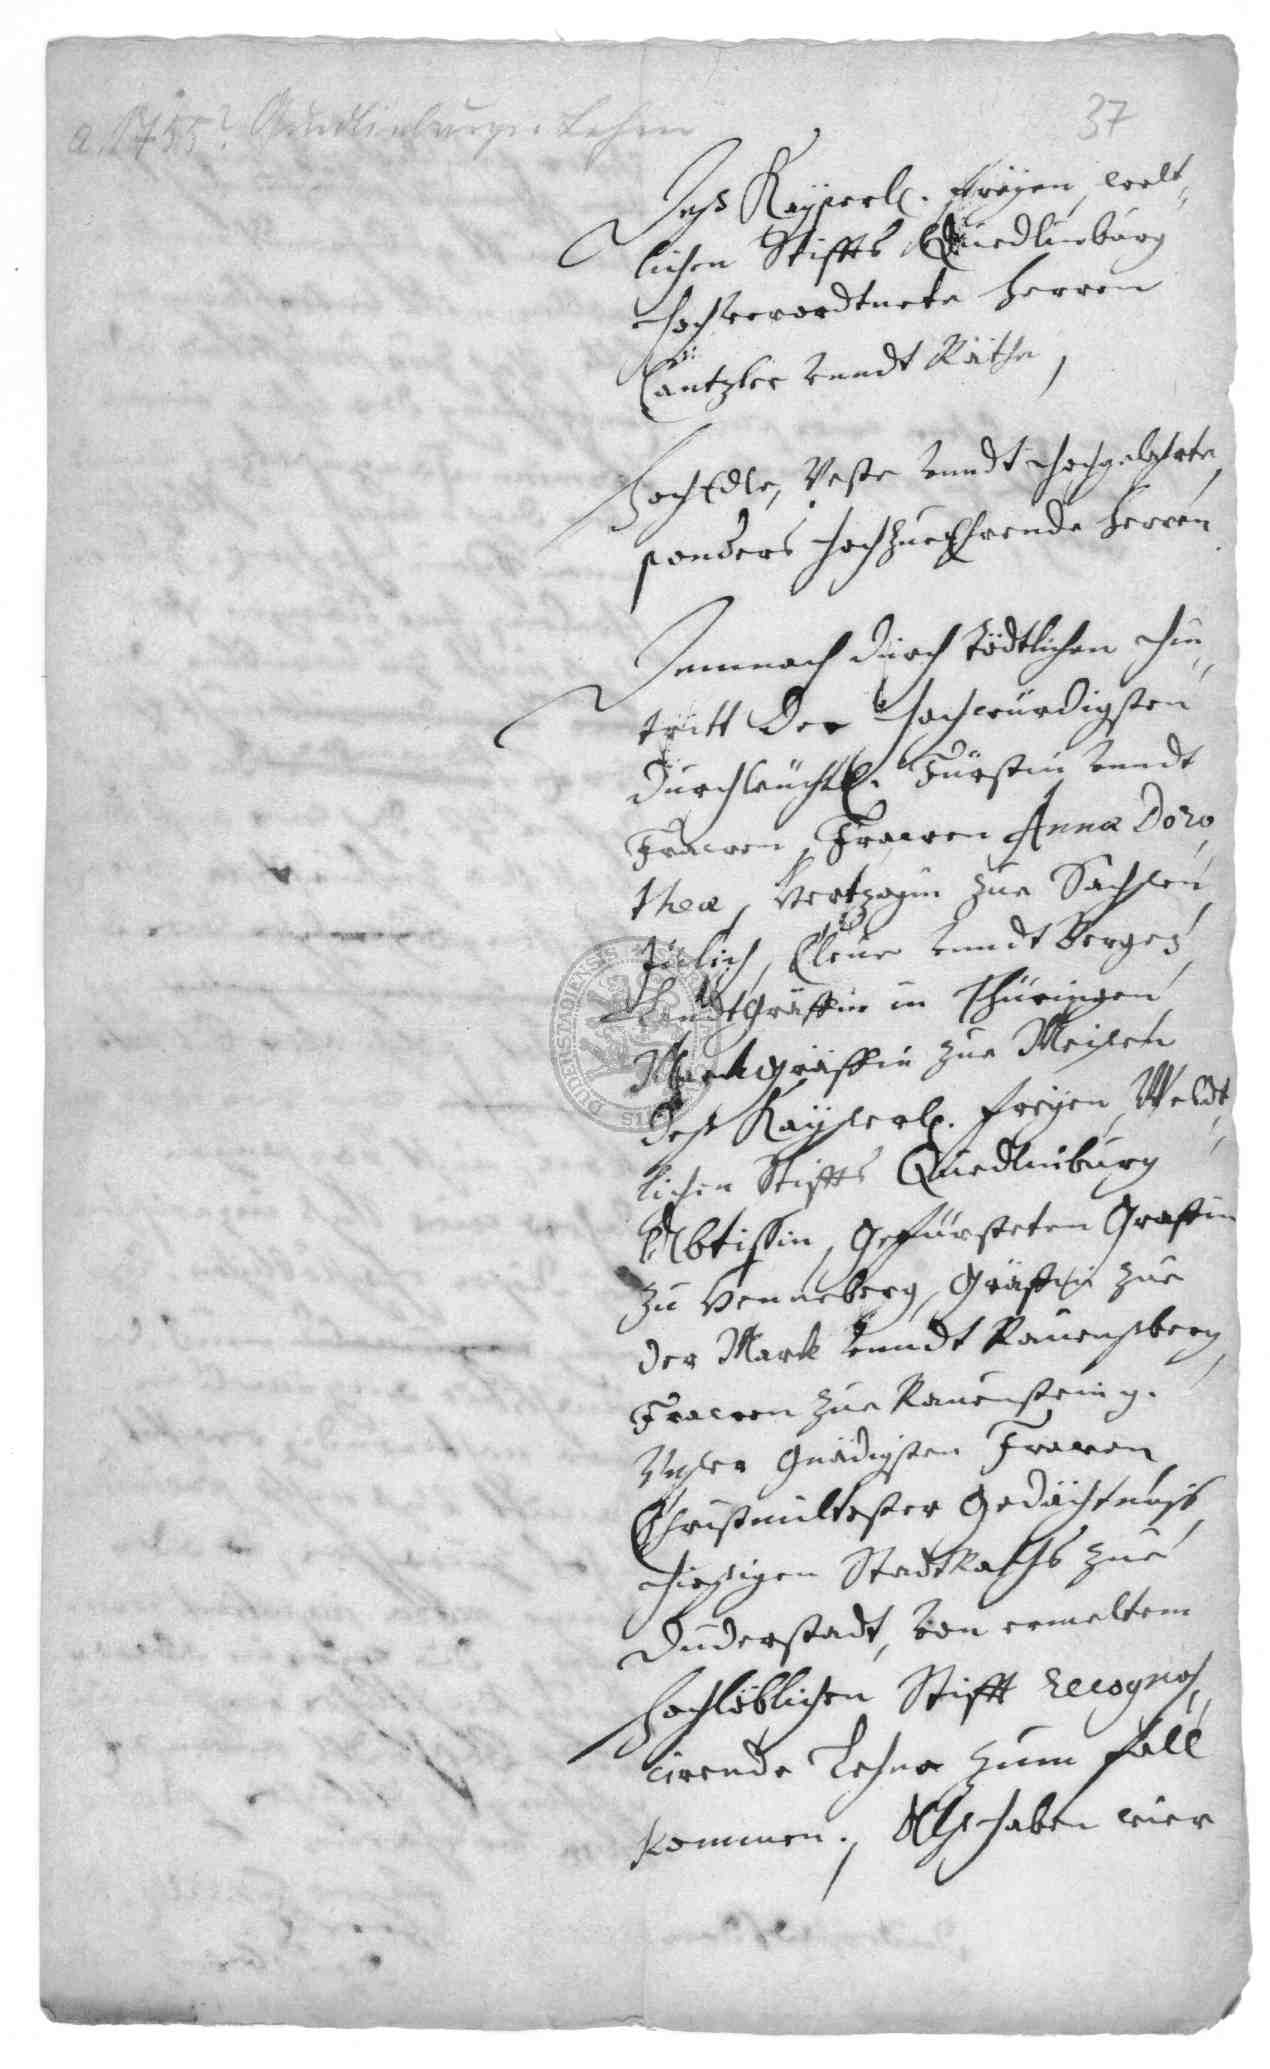 Quedlinburger Lehen
37
Deß Kayserl. freyen, welt,,
lichen Stiffts Quedlinburg
hochverordtnete Herren
Cäntzler vnndt Räthe,
HochEdle, Veste vnndt hochgelahrte,
sonders hochzuehrende Herren
Demnach durch tödtlichen hin,,
tritt der hochwürdigsten
durchleüchtl. Fürstin vnndt
Frawen, Frawen Anna Doro,,
thea, Hertzogin zue Sachsen
Jülich, Cleue vnndt Bergen,
Landtgräffin in Thüringen
Marckgräffin zue Meißen
deß Kayserl. freyen, Weldt,,
lichen Stiffts Quedlinburg
Abtißin, Gefürsteten Gräffin
zu Henneberg, Gräffin zue
der Marck vnndt Rauenßberg,
Frawen zue Rauenstein
Vnser Gnädigsten Frawen
Christmiltester Gedächtnuß,
hiesigen StadtRaths zue
Duderstadt, von ermeltem
Hochlöblichen Stifft recognos,,
cirende Lehne zum fall
kommen, Alß haben wier
DUDERSTADIENSIS